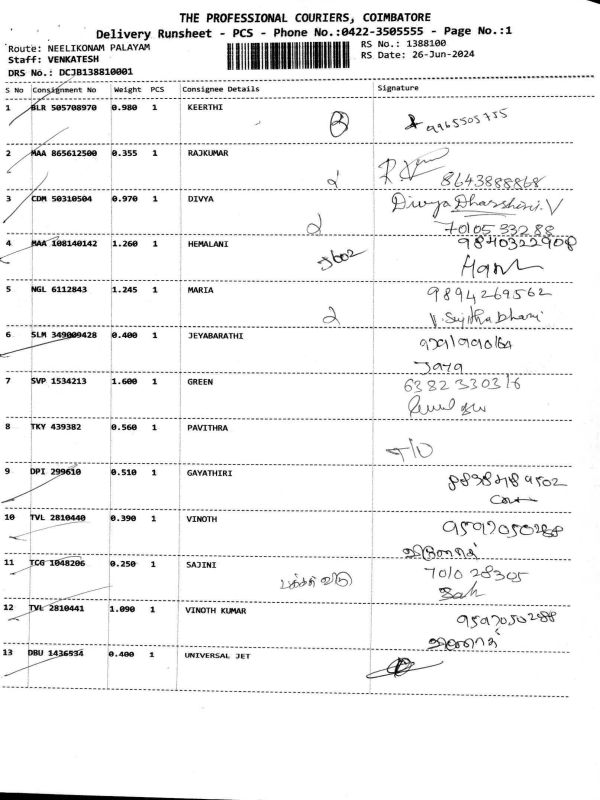 THE PROFESSIONAL COURIERS, COIMBATORE
Delivery Runsheet - PCS - Phone No.:0422-3505555 - Page No.:1
Route: NEELIKONAM PALAYAM
RS No.: 1388100
Staff: VENKATESH
RS Date: 26-Jun-2024
DRS No.: DCJB138810001
S No Consignment No Weight PCS Consignee Details Signature
1 BLR 505708970 0.980 1 KEERTHI
9965505755
2 MAA 865612500 0.355 1 RAJKUMAR
8643888868
3 CDM 50310504 0.970 1 DIVYA Divya Dharshini.V
7010533288
4 MAA 108140142 1.260 1 HEMALANI 9840322908
5 NGL 6112843 1.245 1 MARIA 9894269562
6 SLM 349009428 0.400 1 JEYABARATHI
Jaya
7 SVP 1534213 1.600 1 GREEN
8 TKY 439382 0.560 1 PAVITHRA
9 DPI 299610 0.510 1 GAYATHIRI
10 TVL 2810440 0.390 1 VINOTH 9597050288
11 TCG 1048206 0.250 1 SAJINI
12 TVL 2810441 1.090 1 VINOTH KUMAR 9597050288
13 DBU 1436534 0.400 1 UNIVERSAL JET